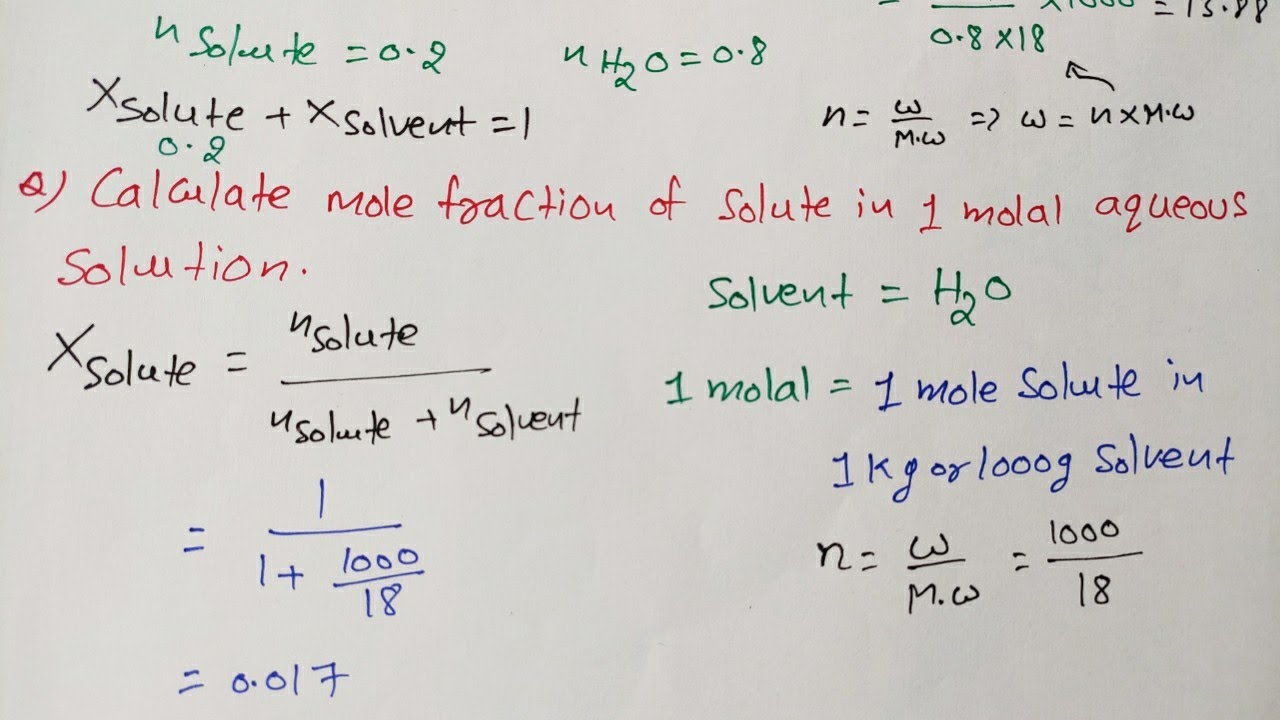 × 1000 = 13.88
0.8 × 18
n solute = 0.2
n H₂O = 0.8
X solute + X solvent = 1
0.2
n = ω/M.ω => ω = n × M.ω
Q) Calculate mole fraction of solute in 1 molal aqueous
solution.
Solvent = H₂O
X solute = n solute / n solute + n solvent
1 molal = 1 mole solute in
1 kg or 1000g solvent
= 1 / 1 + 1000/18
n = ω/M.ω = 1000/18
= 0.017